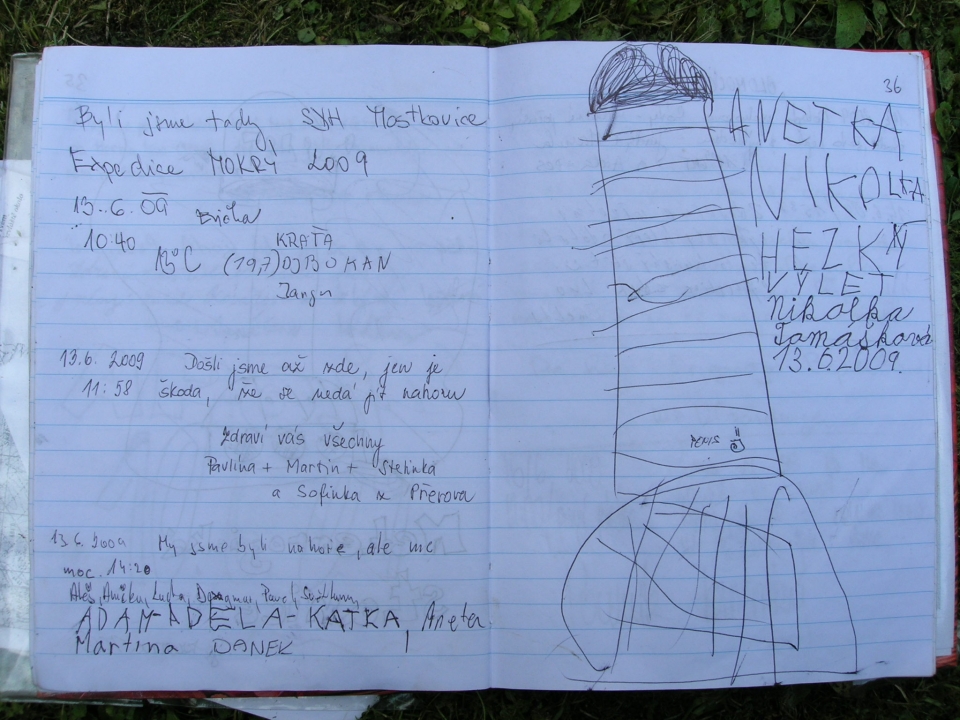 Byli jsme tady, SDH Mostkovice
Expedice MOKRÝ 2009
13.6.09
10:40 KRAŤA
13°C (19,7) DJBOKAN
13.6. 2009 Došli jsme až zde, jen je
11:58 škoda, že se nedá jít nahoru
Zdraví vás všechny
Pavlína + Martin + Štefinka
a Sofinka z Přerova
13.6.2009 My jsme byli nahoře, ale nic
moc. 14:20
Aleš, Dagmar, Pavel,
ADAM-ADÉLA-KATKA, Aneta
Martina DANEK
36
ANETKA
NIKOLKA
HEZKÝ
VÝLET
Nikolka
Tomášková
13.6.2009.
PENIS